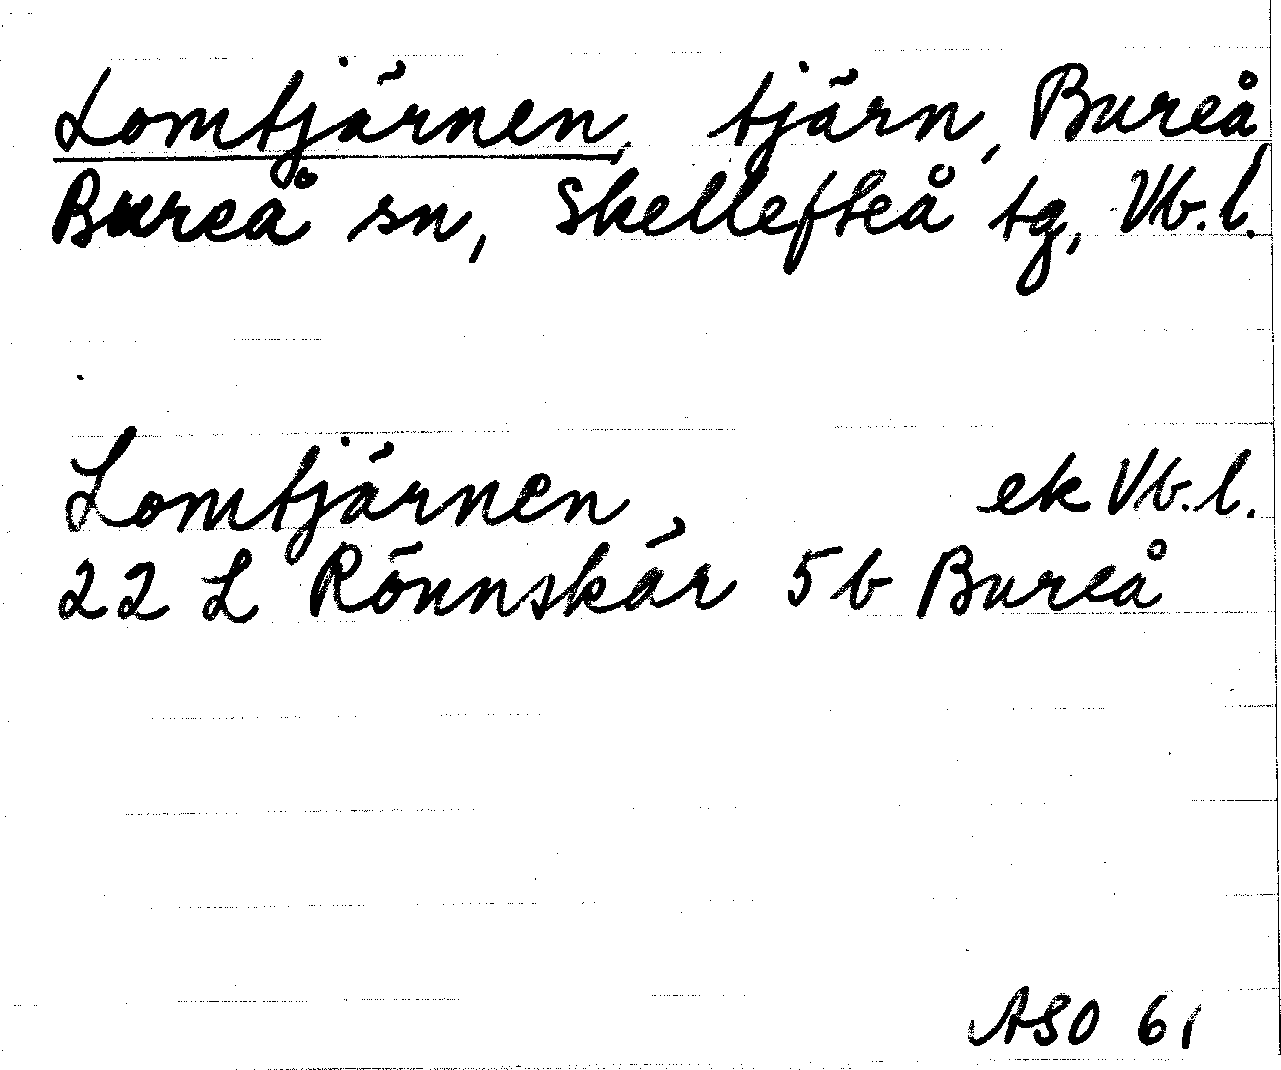 Lomtjärnen, tjärn, Bureå
Bureå sn, Skellefteå tg, Vb.l.
Lomtjärnen, ek Vb.l.
22 L Rönnskär 5b Bureå
ASO 61